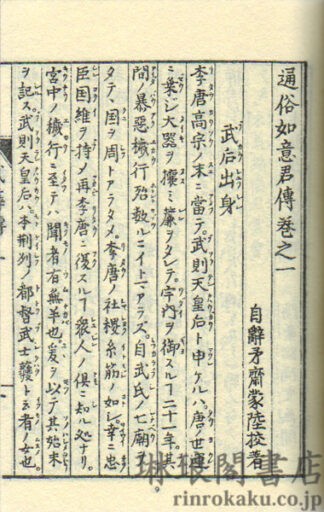 通俗如意君傳巻之一
自辭矛齋蒙陸挍著
武后出身
李唐高宗ノ末ニ當テ。武則天皇后ト申ケルハ。唐世運
ニ乗ジ大器ヲ攘ミ簾ヲタレテ。宇内ヲ御スルヿ二十一年。其
間ノ暴惡穢行殆數ルニイトマアラズ。自武氏ノ七廟ヲ
タテ。国ヲ周トアラタメ。李唐ノ社稷糸筋ノ如シ。幸ニ忠
臣国維ヲ持メ再李唐ニ復スルヿ衆人ノ倶ニ知ル処ナリ。
宮中ノ穢行ニ至テハ聞者有無半也。爰ヲ以テ其始末
ヲ記ス武則天皇后ハ。本荊州ノ都督武士彠ト云者ノ女也
9
琳琅閣書店
rinrokaku.co.jp